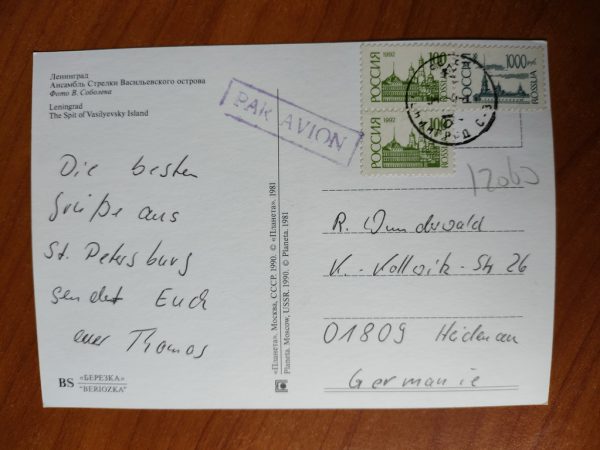 Ленинград
Ансамбль Стрелки Васильевского острова
Фото В. Соболева
Leningrad
The Spit of Vasilyevsky Island
PAR AVION
РОССИЯ
1992
100
ROSSIJA
1000р
ROSSIJA
РОССИЯ
1992
100
ROSSIJA
12060
Die besten
Grüße aus
St. Petersburg
sendet Euch
euer Thomas
«Планета». Москва, СССР. 1990. © «Планета». 1981
Planeta. Moscow, USSR. 1990. © Planeta. 1981
R. Wunderwald
K.-Kollwitz-Str 26
01809 Heidenau
Germanie
BS «БЕРЕЗКА»
"BERIOZKA"